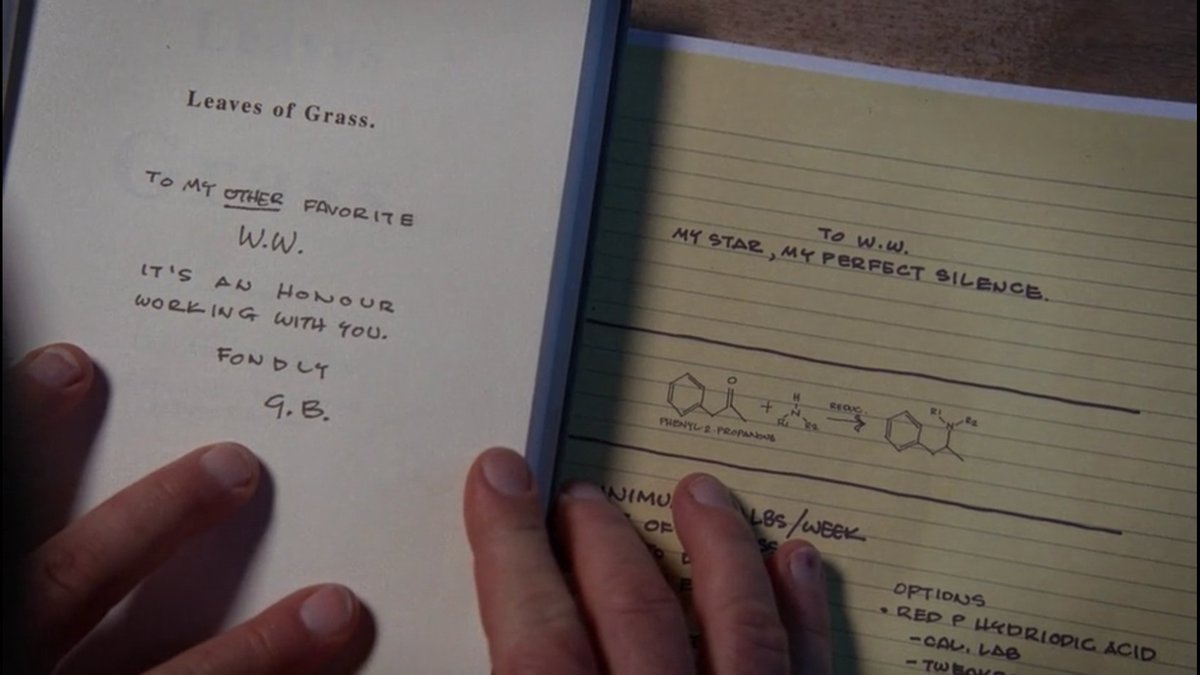 Leaves of Grass.
TO MY OTHER FAVORITE
W.W.
IT'S AN HONOUR
WORKING WITH YOU.
FONDLY
G.B.
TO W.W.
MY STAR, MY PERFECT SILENCE.
O
+
H
N
R1 R2
REDUC.
R1 N R2
PHENYL-2-PROPANONE
LBS/WEEK
OF
OPTIONS
• RED P HYDRIODIC ACID
-CAL. LAB